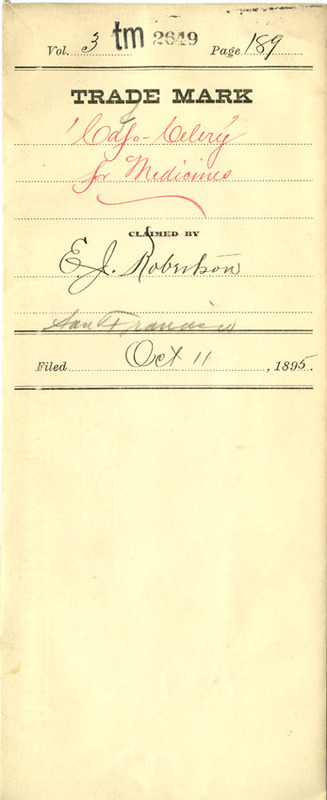 Vol. 3 tm 2649 Page 189
TRADE MARK
"Cafo-Celery"
for Medicines
CLAIMED BY
E. J. Robertson
San Francisco
Filed Oct 11, 1895.